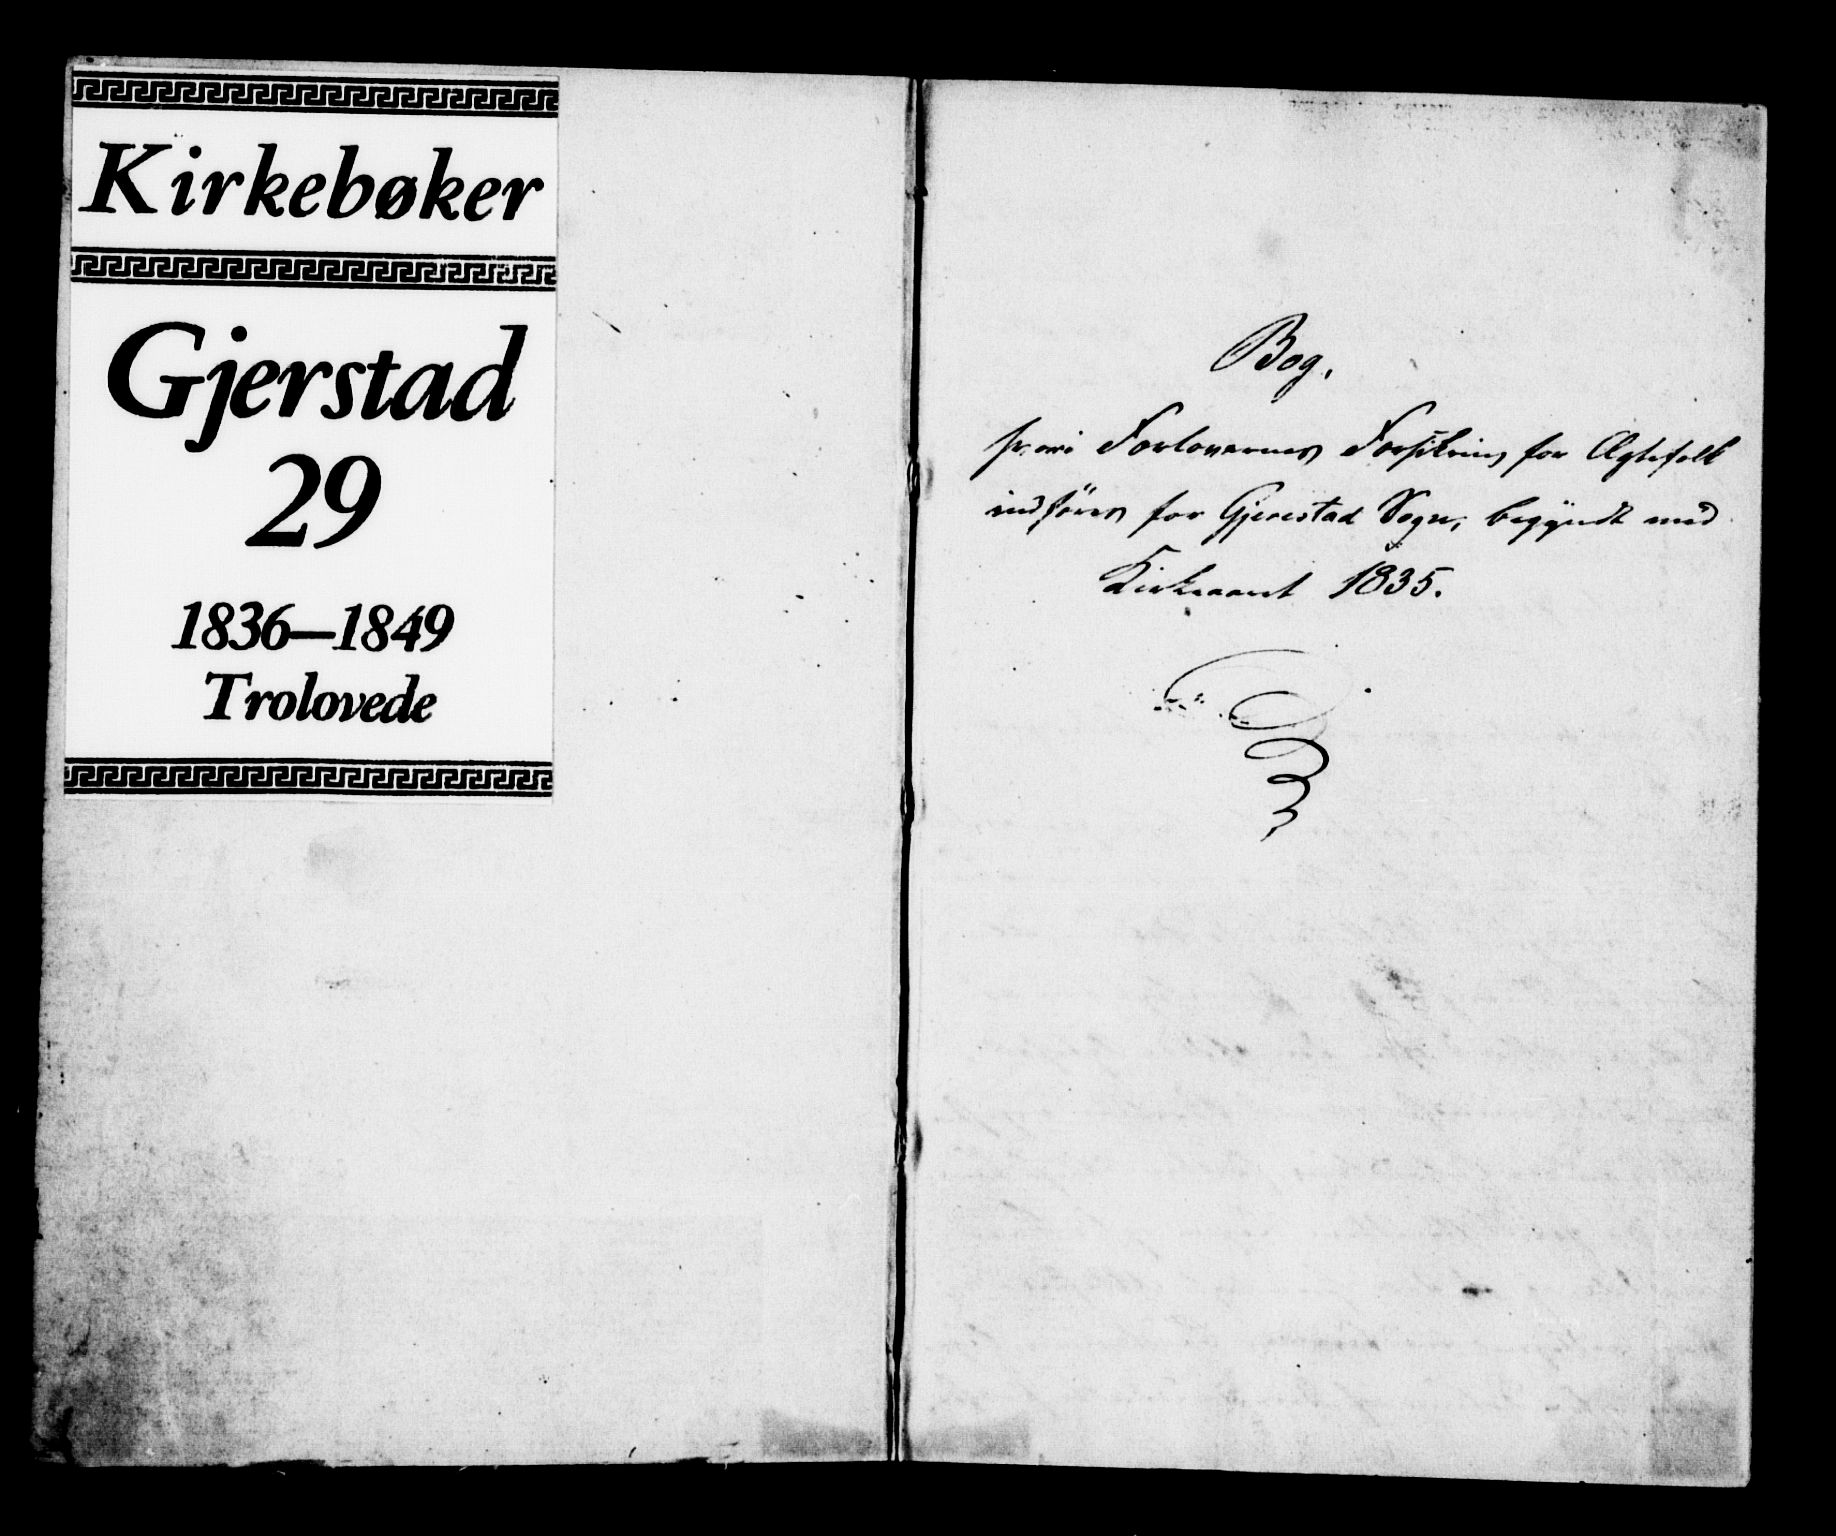 Kirkebøker
Gjerstad
29
1836—1849
Trolovede
Bog,
hvori Forlovernes Forsikring for Ægtefolk
indföres for Gjerestad Sogn, begÿndt med
Kirkeaaret 1835.